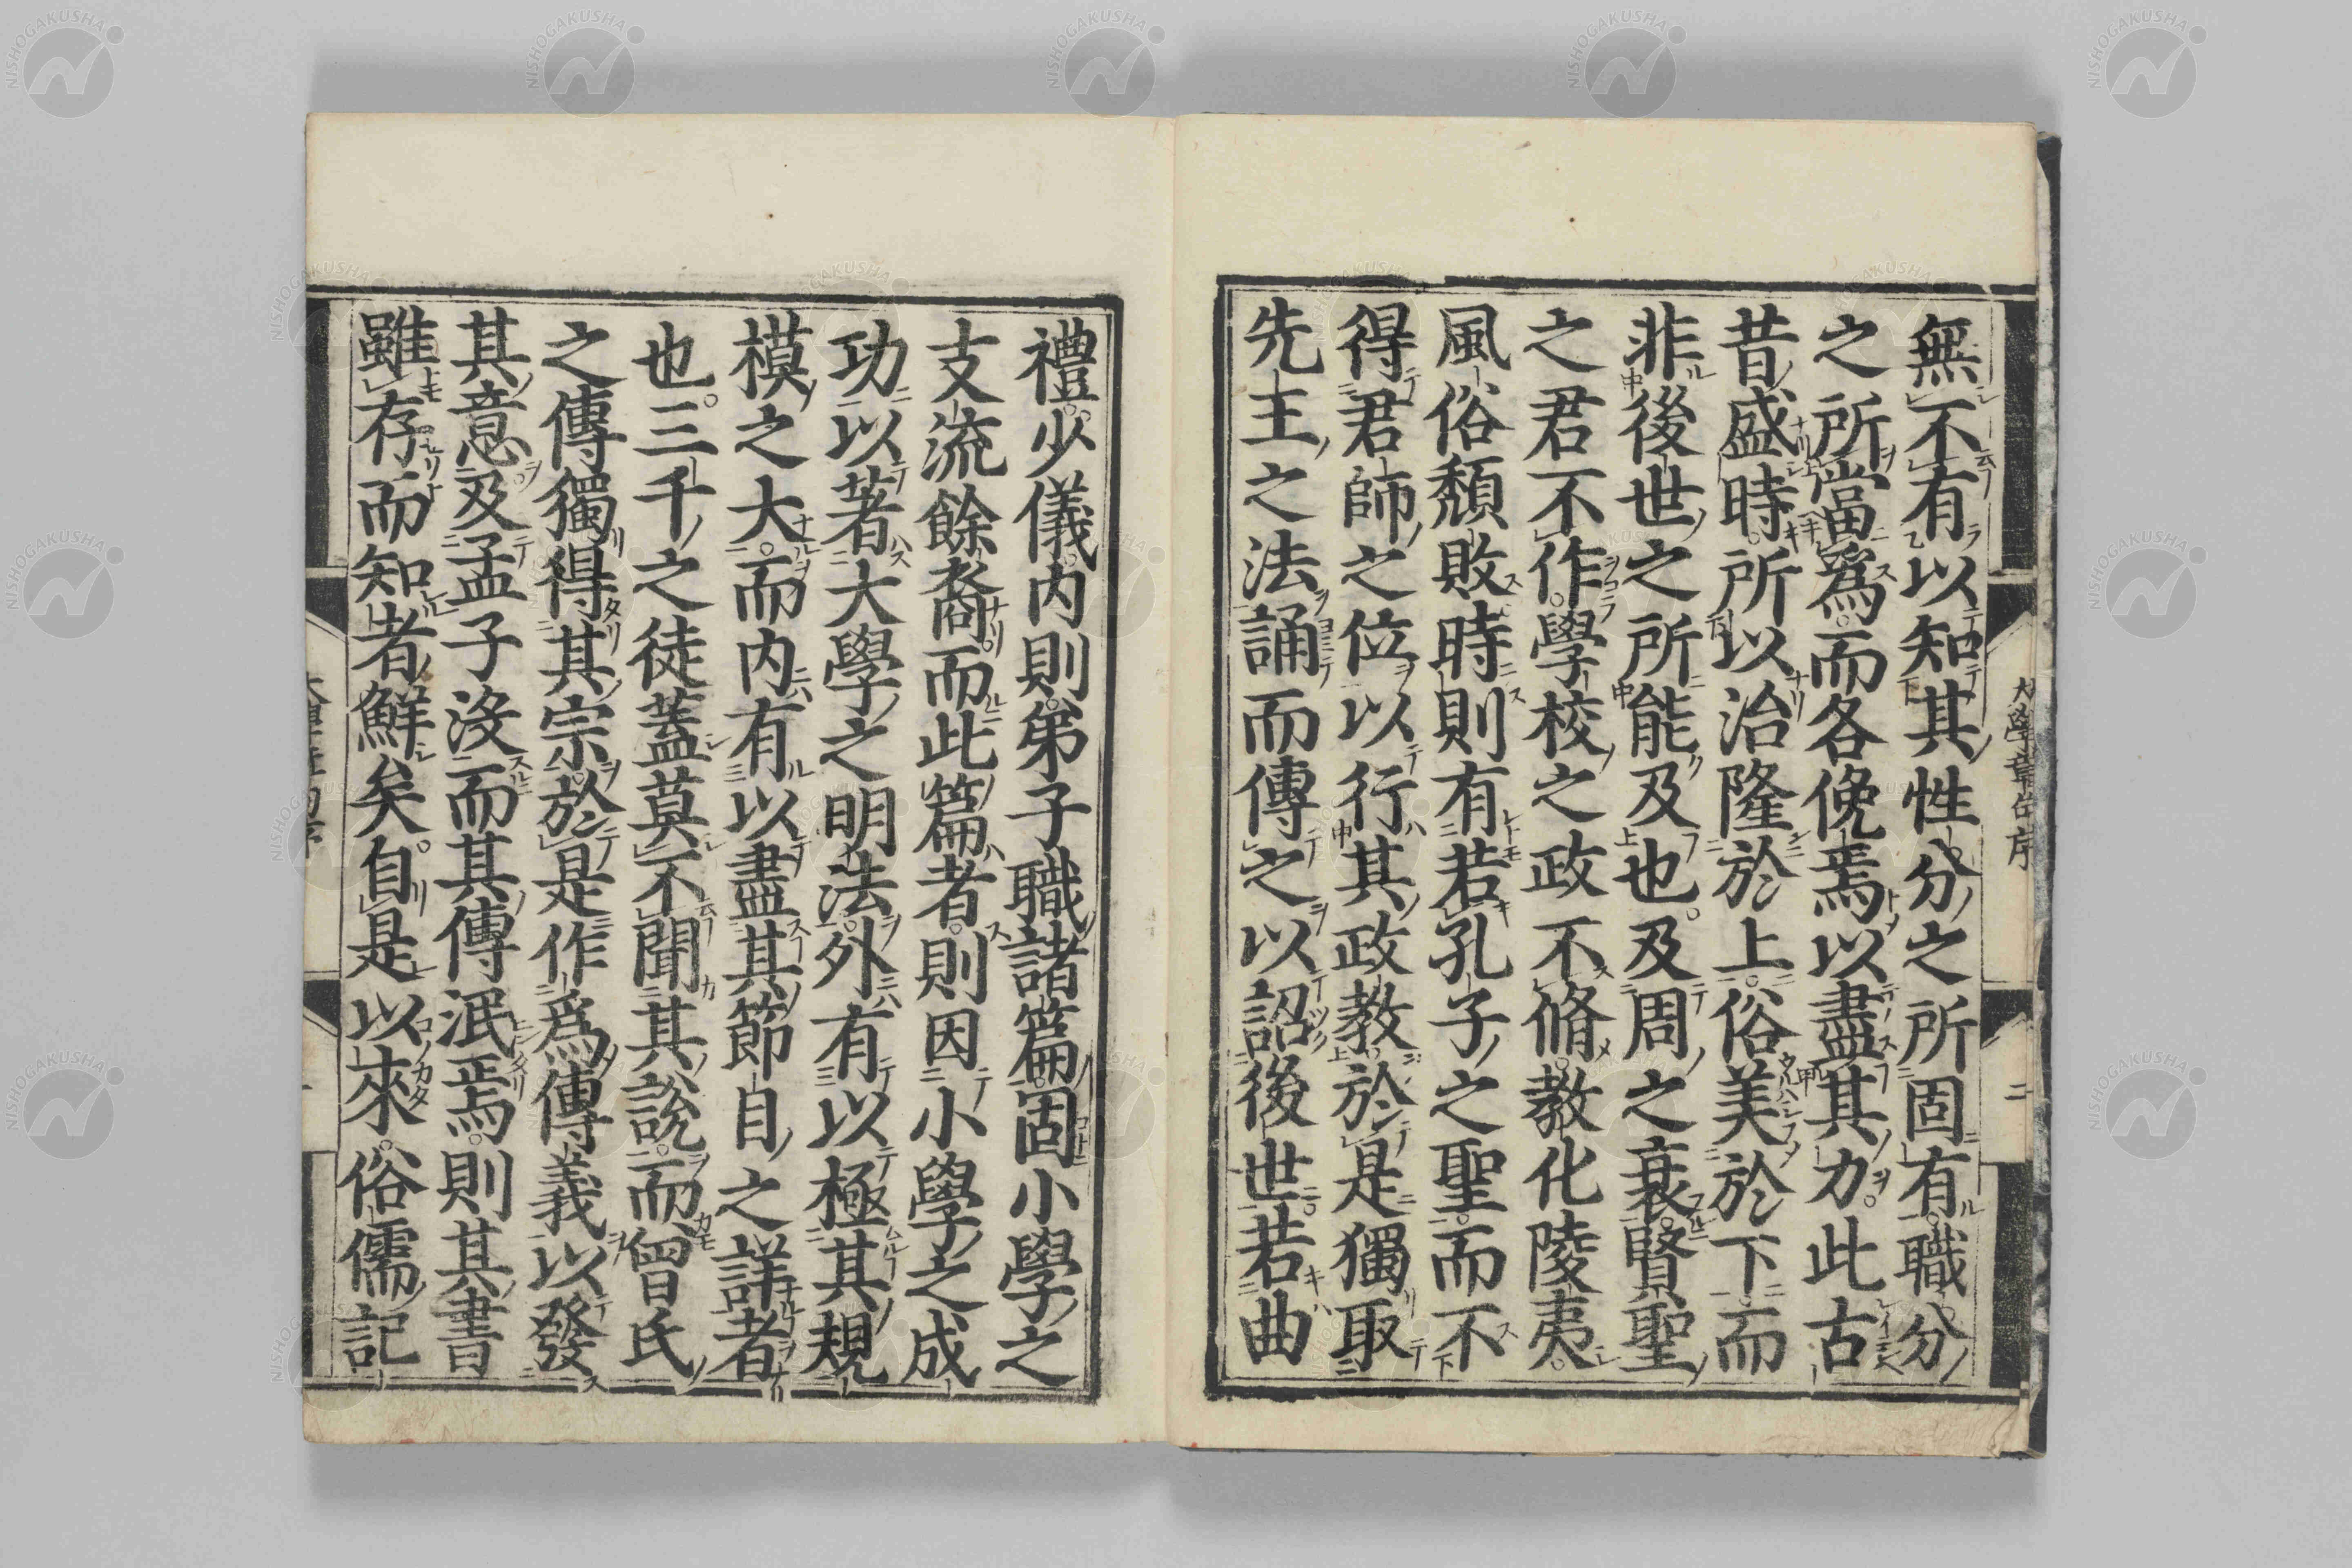 無不有以知其性分之所固有職分
之所當爲而各俛焉以盡其力此古
昔盛時所以治隆於上俗美於下而
非後世之所能及也及周之衰賢聖
之君不作學校之政不脩教化陵夷
風俗頽敗時則有若孔子之聖而不
得君師之位以行其政教於是獨取
先王之法誦而傳之以詔後世若曲
禮少儀内則弟子職諸篇固小學之
支流餘裔而此篇者則因小學之成
功以著大學之明法外有以極其規
模之大而内有以盡其節目之詳者
也三千之徒蓋莫不聞其説而曾氏
之傳獨得其宗於是作爲傳義以發
其意及孟子没而其傳泯焉則其書
雖存而知者鮮矣自是以來俗儒記
大學章句序
二
NISHOGAKUSHA